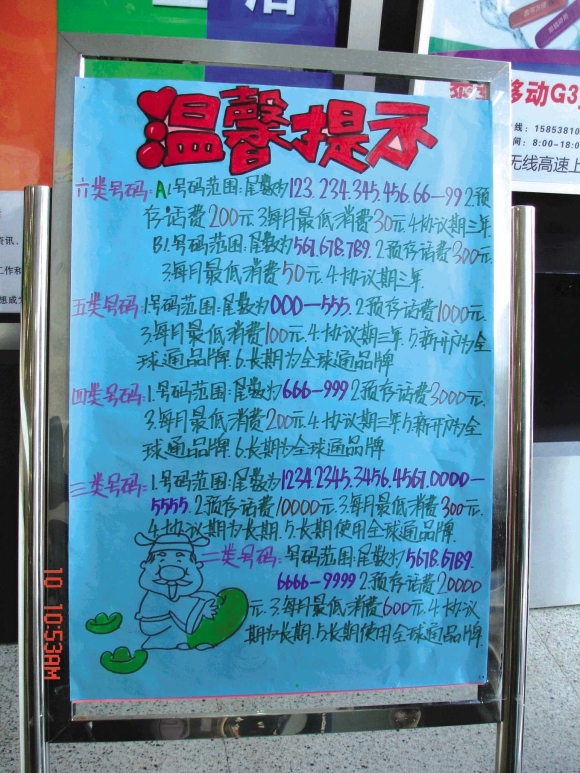 生活
移动G3
线：1585381 0
间：8:00-18:0
无线高速上
资讯、
工作和
想成为
温馨提示
六类号码：A1.号码范围：尾数为123.234.345.456.66—99 2.预
存话费200元 3.每月最低消费30元 4.协议期三年.
B1.号码范围：尾数为567.678.789. 2.预存话费300元.
3.每月最低消费50元. 4.协议期三年.
五类号码：1.号码范围：尾数为000—555. 2.预存话费1000元.
3.每月最低消费100元. 4.协议期三年. 5.新开户为全
球通品牌. 6.长期为全球通品牌
四类号码：1.号码范围：尾数为666-999 2.预存话费3000元.
3.每月最低消费200元. 4.协议期三年. 5.新开户为全
球通品牌. 6.长期为全球通品牌
三类号码：1.号码范围：尾数为1234.2345.3456.4567.0000—
5555. 2.预存话费10000元. 3.每月最低消费300元.
4.协议期为长期. 5.长期使用全球通品牌.
二类号码：号码范围：尾数为5678.6789.
6666-9999 2.预存话费20000
元. 3.每月最低消费600元. 4.协议
期为长期. 5.长期使用全球通品牌.
10 10:53AM